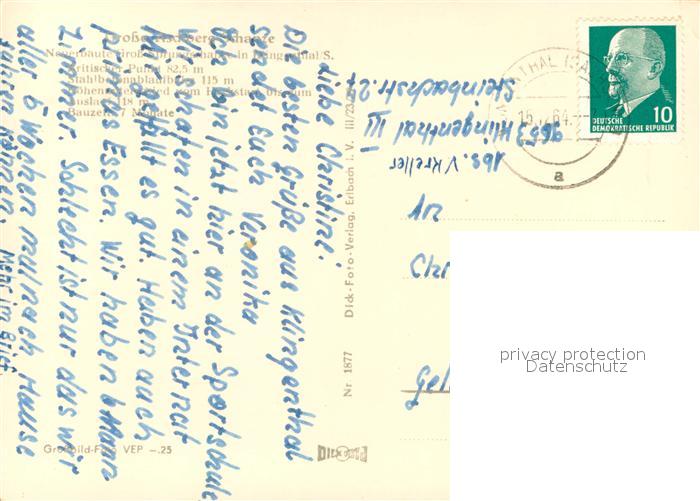 Große Aschberg-Schanze
Neuerbaute Großsprungschanze in Klingenthal/S.
Kritischer Punkt 82,5 m
Stahlbetonanlaufturm 115 m
Höhenunterschied vom Hochstart bis zum
Auslauf 118 m
Bauzeit 7 Monate
Liebe Christine.
Die besten Grüße aus Klingenthal
sendet Euch Veronika
Bin jetzt hier an der Sportschule
Wir schlafen in einem Internat
Mir gefällt es gut. Haben auch
prima Essen. Wir haben 6 Mann
Zimmer. Schlecht ist nur das wir
aller 6 Wochen mal nach Hause
fahren können. Mehr im Brief.
Abs. V. Kreller
9653 Klingenthal III
Steinbachstr. 27
Nr 1877 Dick-Foto-Verlag, Erlbach i. V. III/23/
Großbild-Foto VEP -.25
DICK
THAL (SA
a
10
DEUTSCHE
DEMOKRATISCHE REPUBLIK
privacy protection
Datenschutz